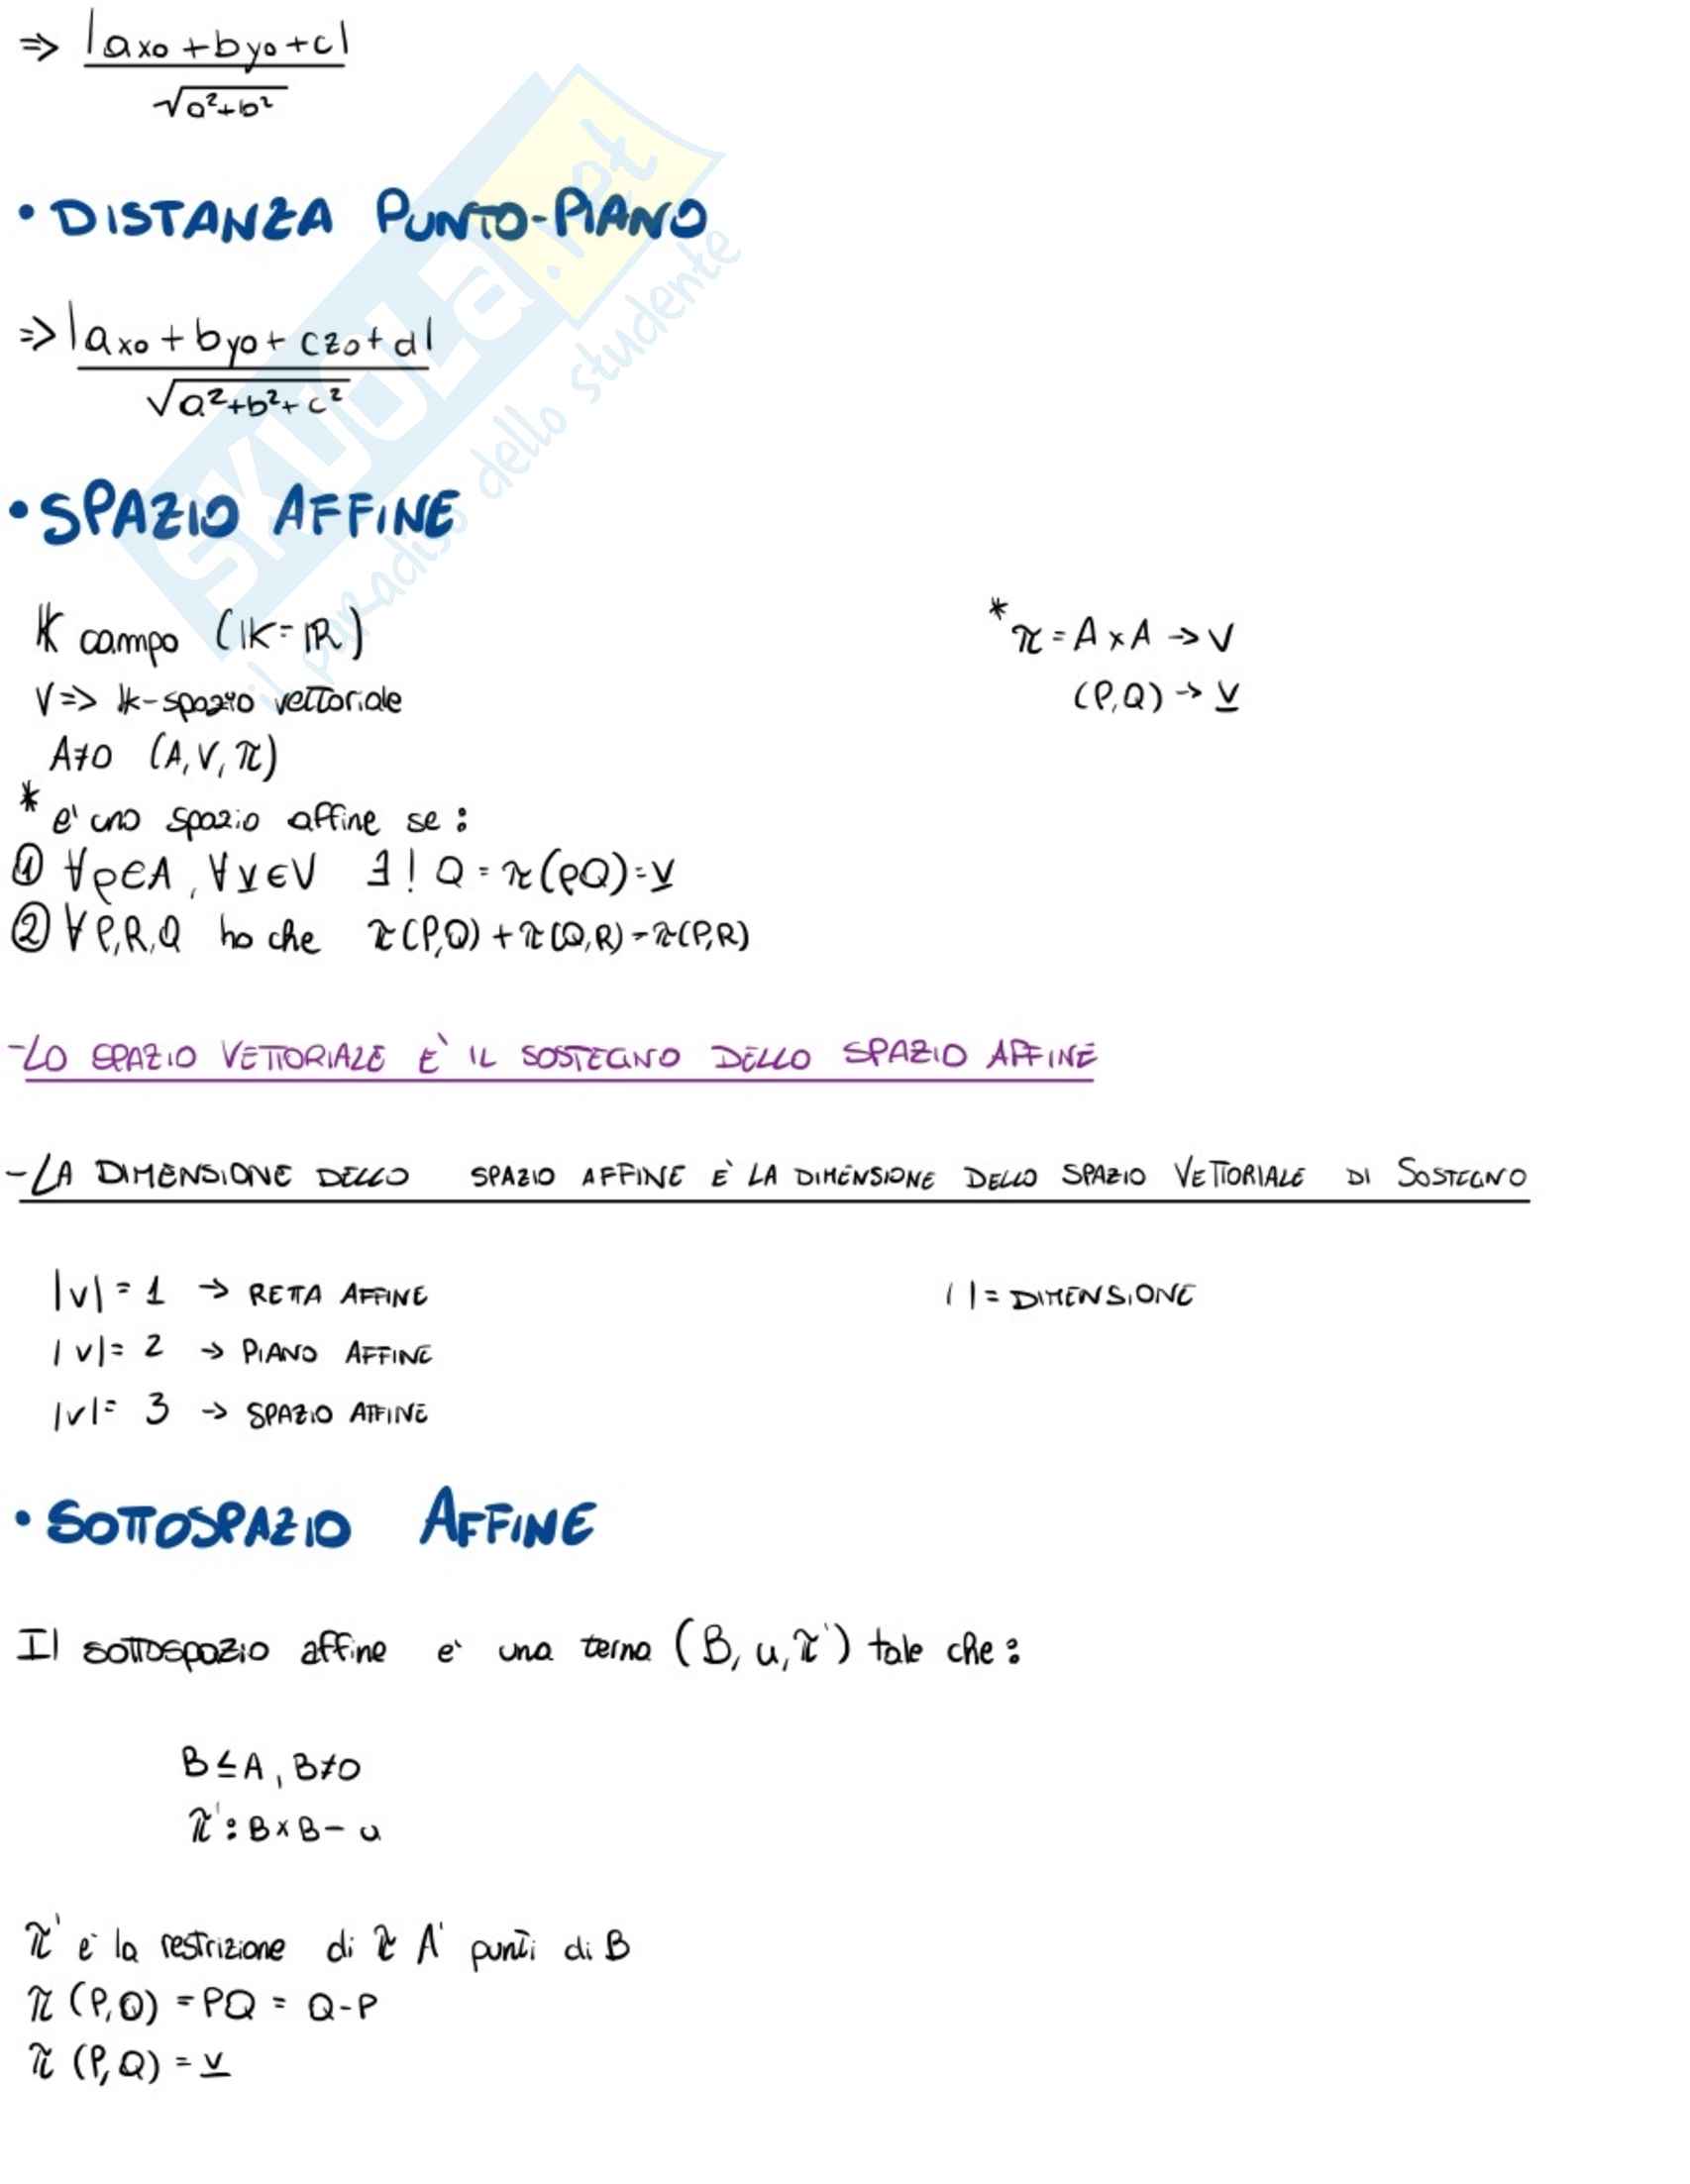 => |ax0 + by0 + c|
√a²+b²
• DISTANZA PUNTO-PIANO
=> |ax0 + by0 + cz0 + d|
√a²+b²+c²
• SPAZIO AFFINE
SKUOLA.net
il paradiso dello studente
K campo (K=ℝ)
V => K-spazio vettoriale
A≠0 (A, V, π)
* e' uno spazio affine se:
① ∀p∈A, ∀v∈V ∃! Q = π(pQ)=v
② ∀P,R,Q ho che π(P,Q) + π(Q,R) = π(P,R)
* π = A x A -> V
(P,Q) -> v
-LO SPAZIO VETTORIALE E' IL SOSTEGNO DELLO SPAZIO AFFINE
-LA DIMENSIONE DELLO SPAZIO AFFINE E' LA DIMENSIONE DELLO SPAZIO VETTORIALE DI SOSTEGNO
|v| = 1 -> RETTA AFFINE
| | = DIMENSIONE
|v| = 2 -> PIANO AFFINE
|v| = 3 -> SPAZIO AFFINE
• SOTTOSPAZIO AFFINE
Il sottospazio affine e' una terna (B, u, π') tale che:
B≤A, B≠0
π': B x B - u
π' e' la restrizione di π A' punti di B
π (P,Q) = PQ = Q-P
π (P,Q) = v